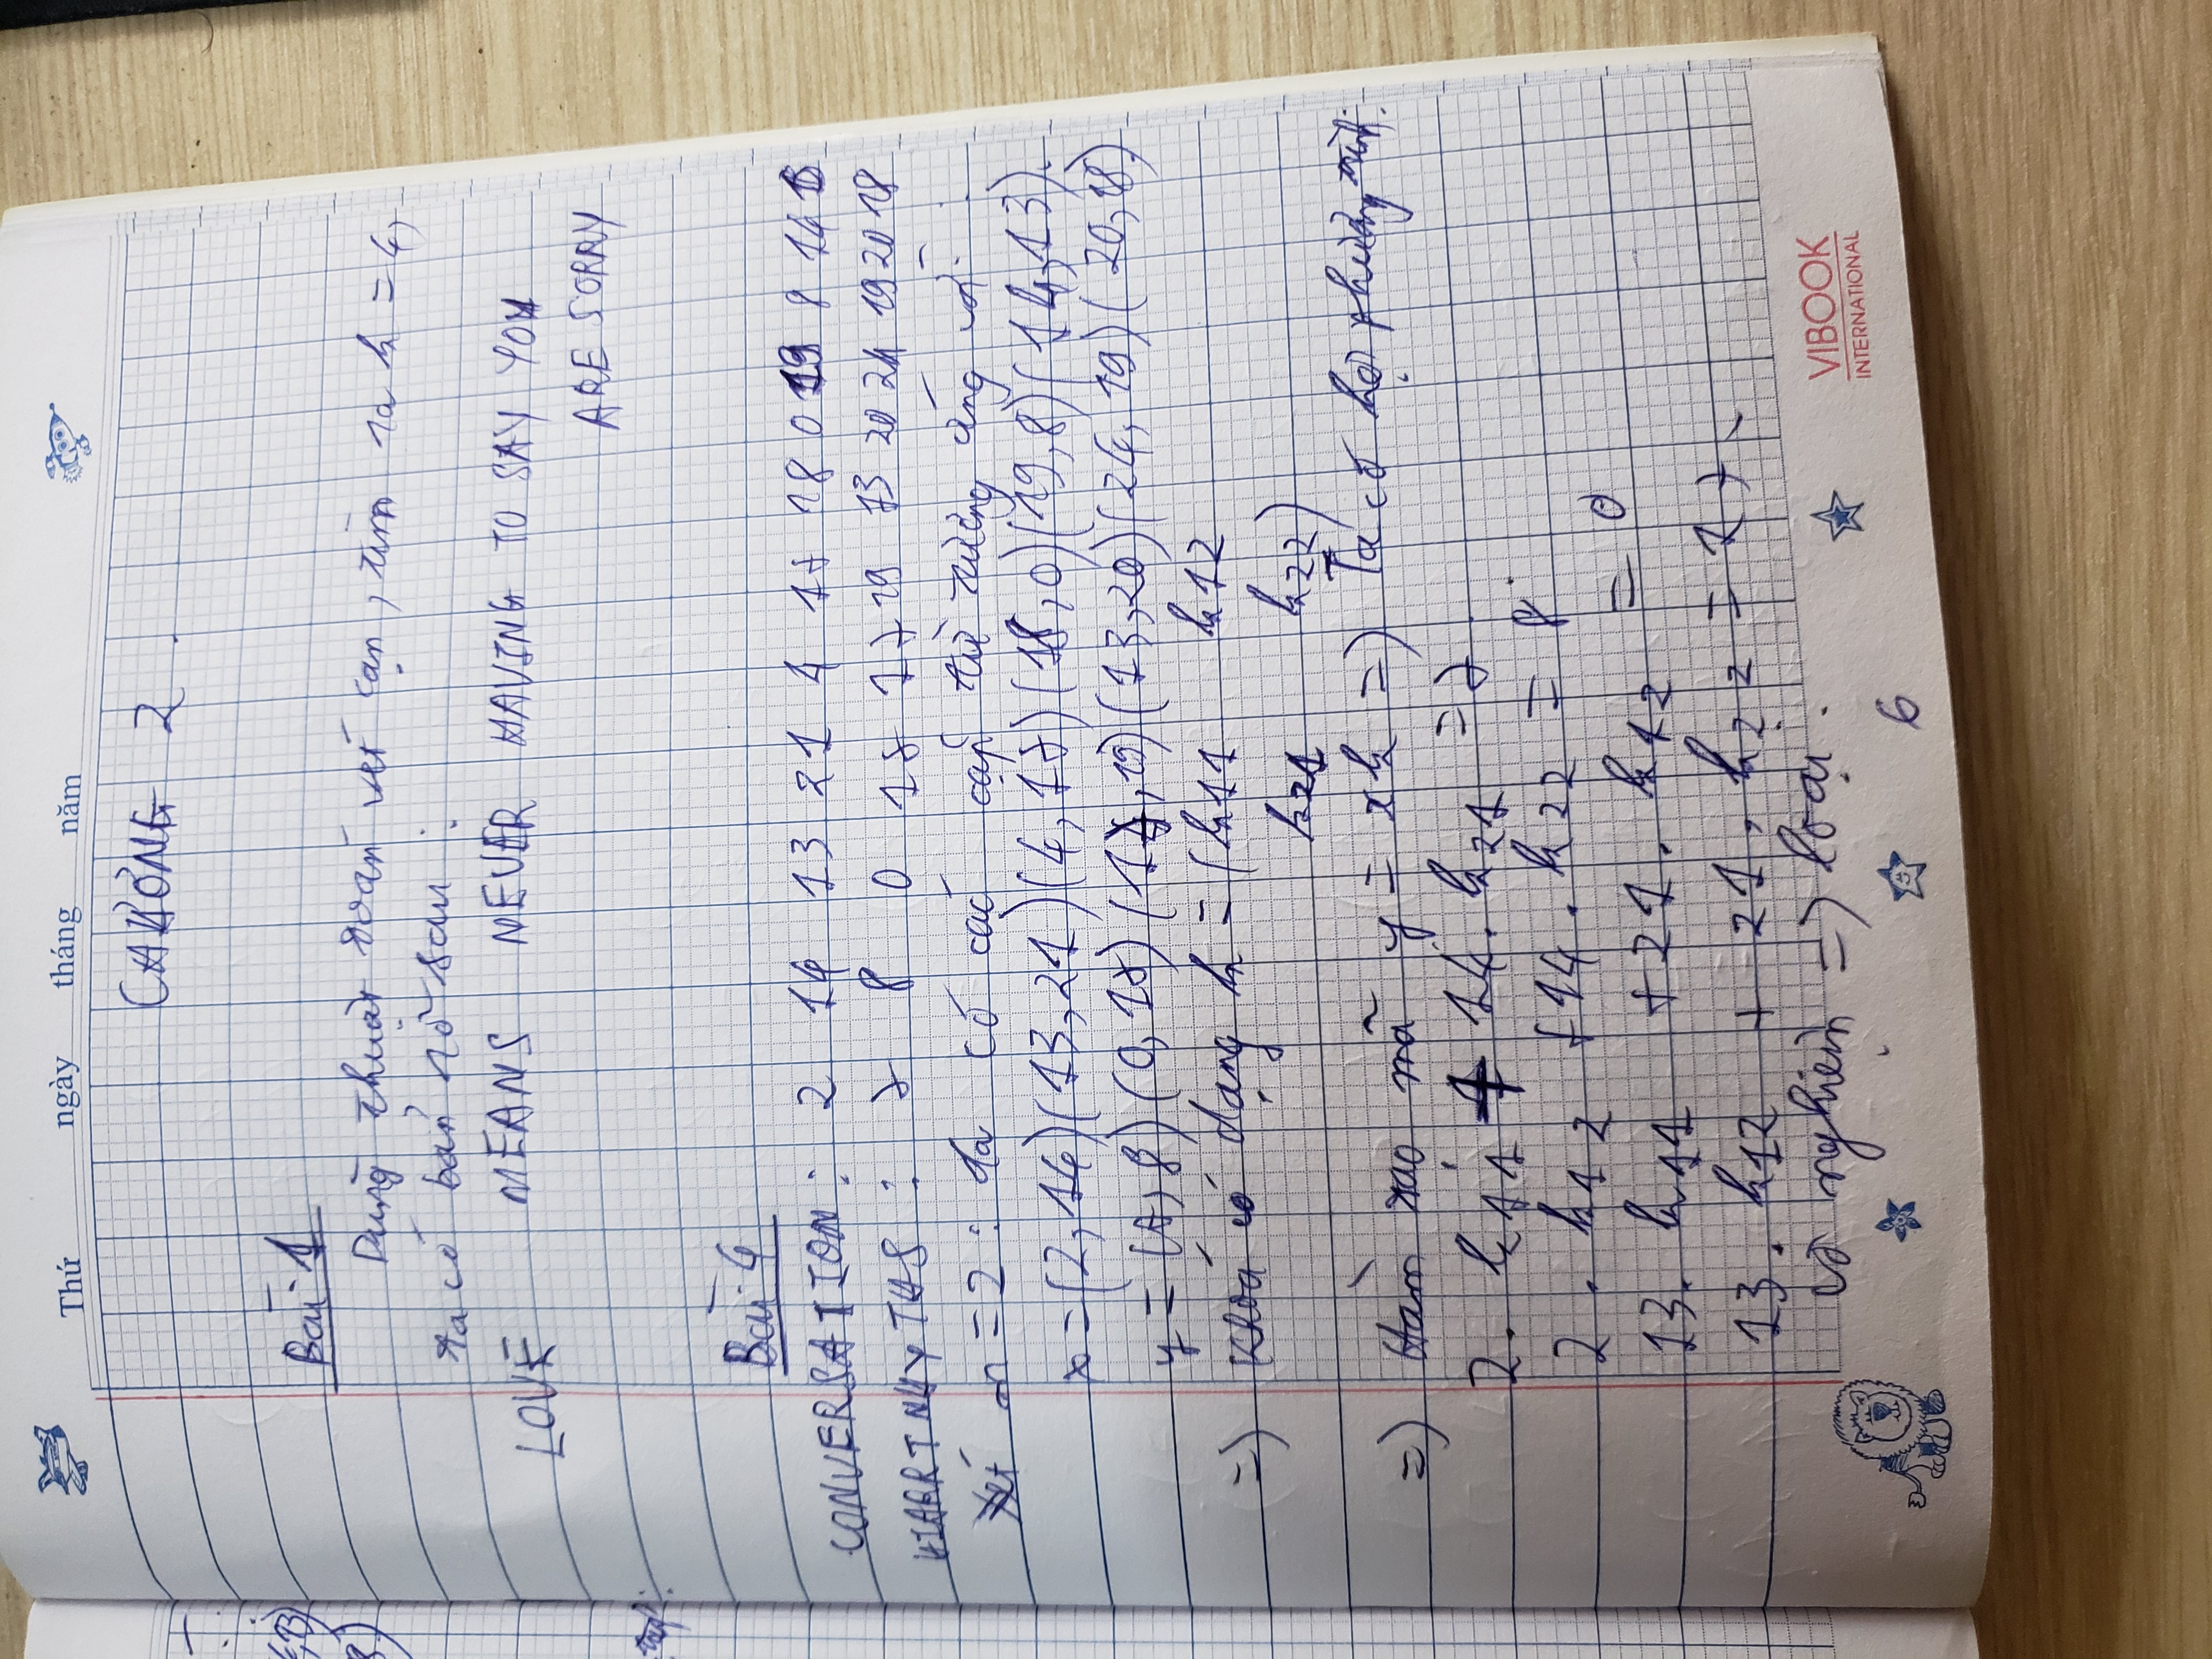 Thứ ngày tháng năm
CHƯƠNG 2.
Bài 1
Dùng thuật toán vét cạn, tìm ra k = 4,
ta có bản rõ sau:
LOVE MEANS NEVER HAVING TO SAY YOU
ARE SORRY
Bài 4
CONVERSATION: 2 14 13 21 4 17 18 0 19 8 14 13
HIARRTNUYTUS: 7 8 0 17 17 19 13 20 24 19 20 18
Xét m = 2: ta có các cặp từ tương ứng với:
x = (2, 14) (13, 21) (4, 17) (18, 0) (19, 8) (14, 13).
y = (7, 8) (0, 17) (17, 19) (13, 20) (24, 19) (20, 18)
=) Khoá có dạng k = (k11 k12
k21 k22)
=) Hàm tạo mã y = xk =) Ta có hệ phương trình:
2. k11 + 14. k21 = 7
2. k12 + 14. k22 = 8
13. k11 + 21. k12 = 0
13. k12 + 21. k22 = 17
Vô nghiệm =) loại.
VIBOOK
INTERNATIONAL
6